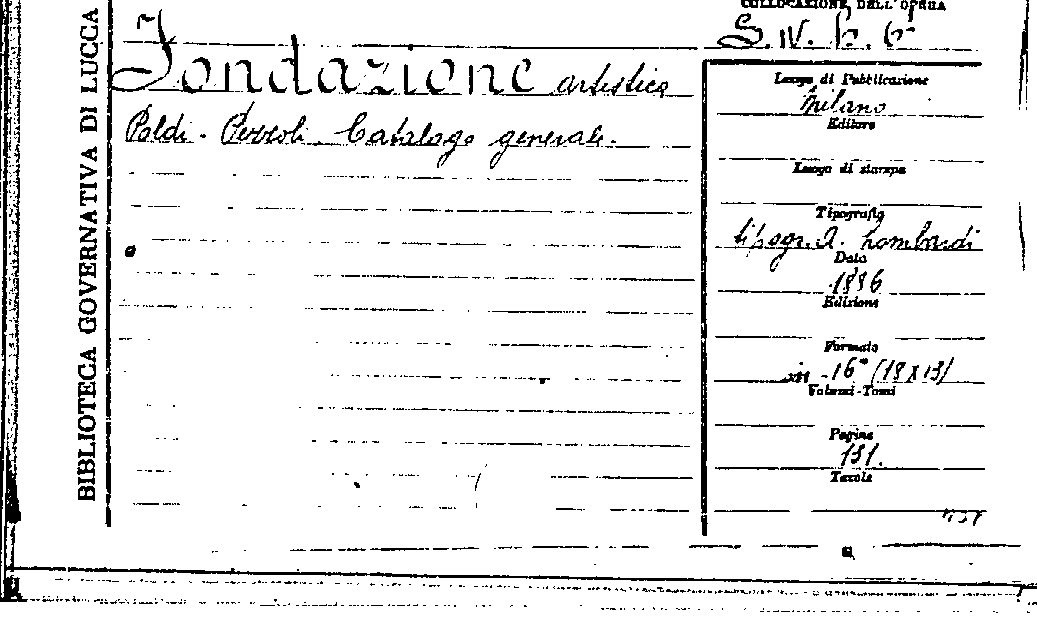 BIBLIOTECA GOVERNATIVA DI LUCCA
COLLOCAZIONE DELL'OPERA
Fondazione artistica
Poldi-Pezzoli. Catalogo generale.
Luogo di Pubblicazione
Milano
Editore
Luogo di stampa
Tipografia
tipogr. A. Lombardi
Data
1886
Edizione
Formato
in-16° (18x13)
Volumi-Tomi
Pagine
131.
Tavole